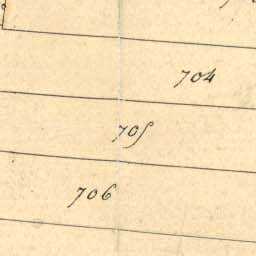 704
705
706